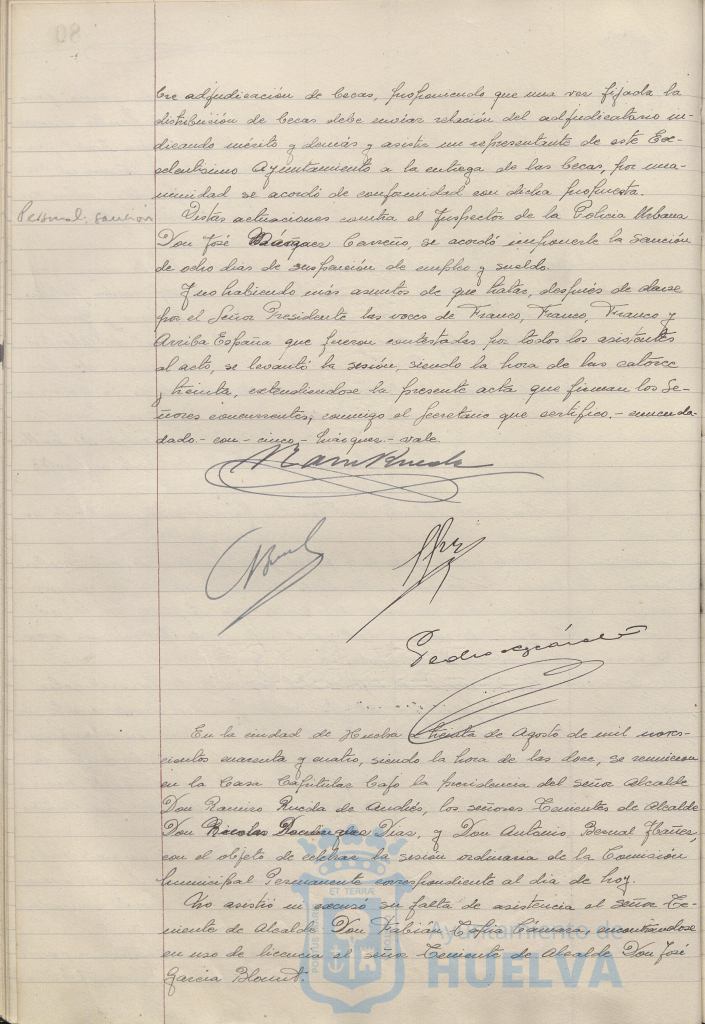 bre adjudicación de becas, proponiendo que una vez fijada la
distribución de becas debe enviar relación del adjudicatario in-
dicando mérito y demás y asistir un representante de este Ex-
celentísimo Ayuntamiento a la entrega de las becas, por una-
nimidad se acordó de conformidad con dicha propuesta.
Personal, sanción
Vistas actuaciones contra el Inspector de la Policia Urbana
Don José Márquez Carreño, se acordó imponerle la sanción
de ocho dias de suspensión de empleo y sueldo.
Y no habiendo más asuntos de que tratar, después de darse
por el Señor Presidente las voces de Franco, Franco, Franco y
Arriba España que fueron contestadas por todos los asistentes
al acto, se levantó la sesión, siendo la hora de las catorce
y treinta, extendiendose la presente acta que firman los Se-
ñores concurrentes, conmigo el Secretario que certifico.- enmenda-
dado.- con - cinco - Márquez.- vale.
Pedro
En la ciudad de Huelva a treinta de Agosto de mil nove-
cientos cuarenta y cuatro, siendo la hora de las doce, se reunieron
en la Casa Capitular bajo la presidencia del señor Alcalde
Don Ramiro Rueda de Andrés, los señores Tenientes de Alcalde
Don Nicolas Dominguez Dias, y Don Antonio Bernal
con el objeto de celebrar la sesión ordinaria de la Comisión
Municipal Permanente correspondiente al dia de hoy.
No asistió ni excusó su falta de asistencia el señor Te-
niente de Alcalde Don Fabián Cámara, encontrándose
en uso de licencia el señor Teniente de Alcalde Don José
Garcia
Ayuntamiento de
HUELVA